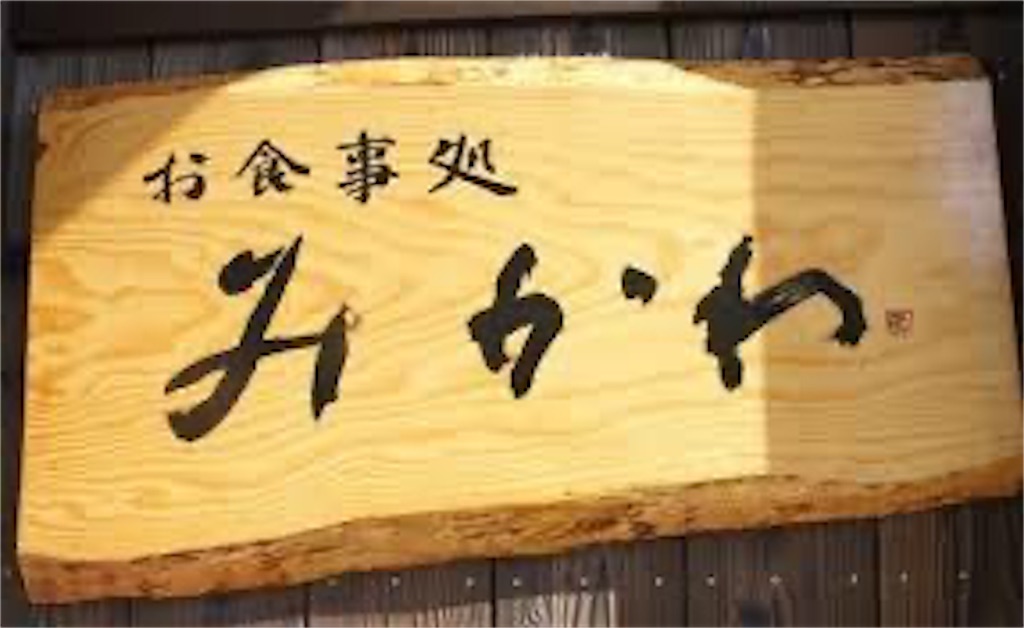 お食事処
みかわ